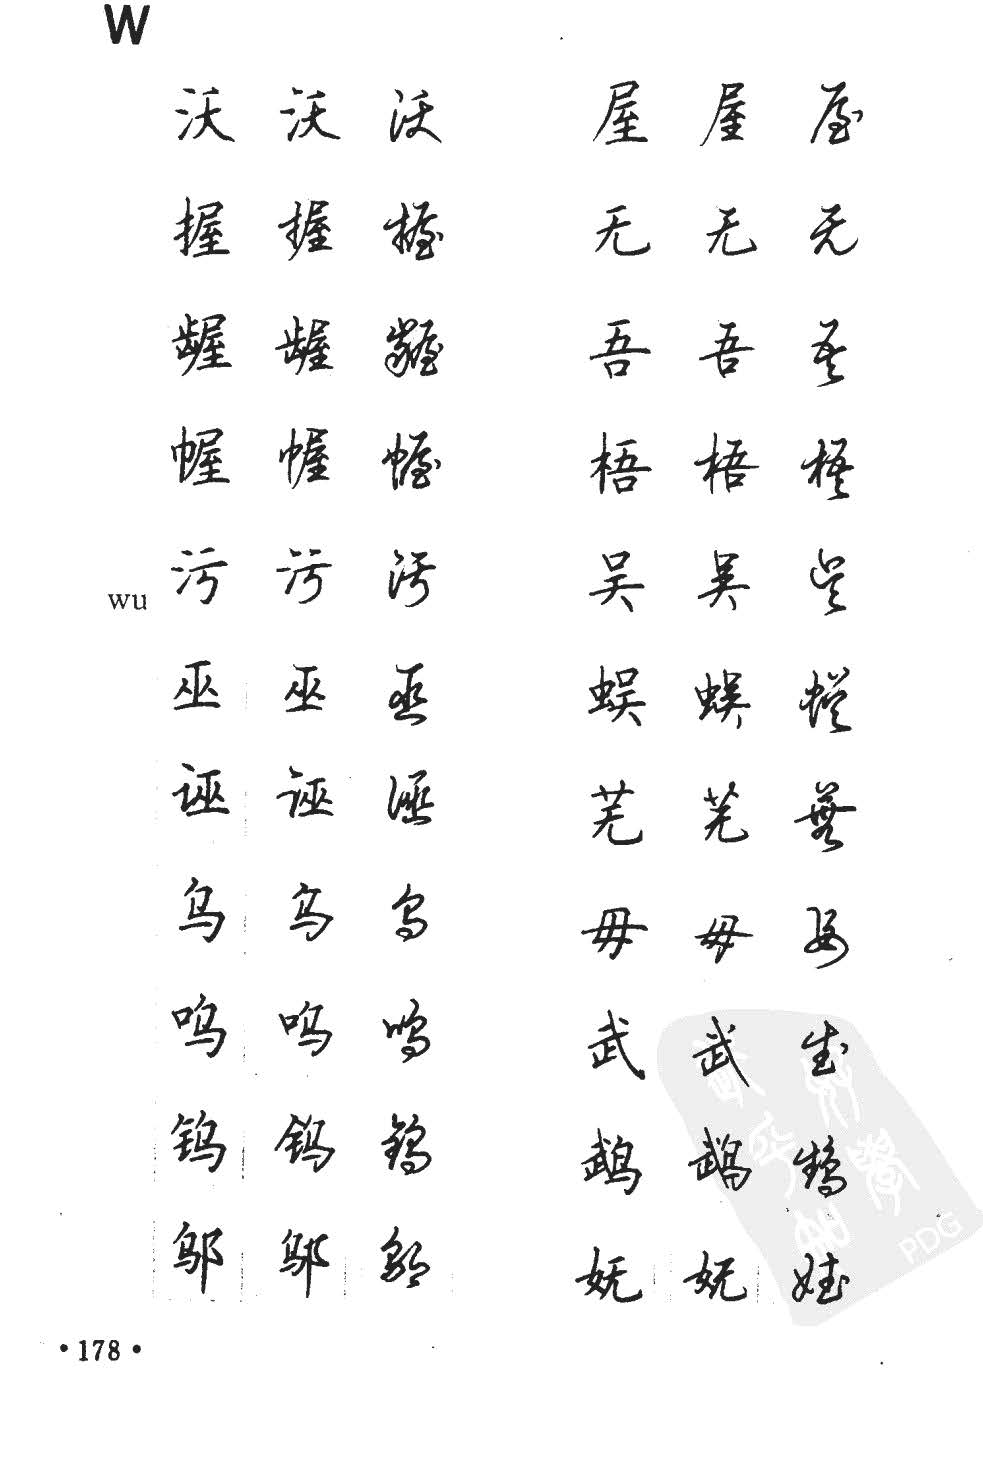 W
沃 沃 沃 屋 屋 屋
握 握 握 无 无 无
龌 龌 龌 吾 吾 吾
幄 幄 幄 梧 梧 梧
wu 污 污 污 吴 吴 吴
巫 巫 巫 蜈 蜈 蜈
诬 诬 诬 芜 芜 芜
乌 乌 乌 毋 毋 毋
呜 呜 呜 武 武 武
钨 钨 钨 鹉 鹉 鹉
邬 邬 邬 妩 妩 妩
PDG
·178·